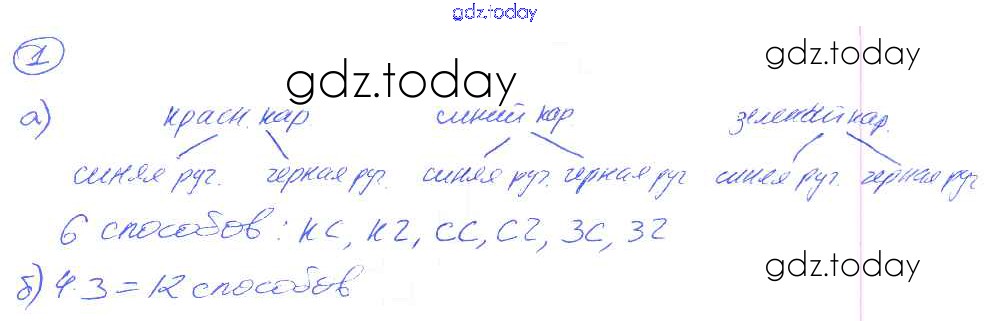 gdz.today
1
gdz.today
gdz.today
а) красн. кар синий кар зеленый кар.
синяя руч. черная руч. синяя руч. черная руч синяя руч. черная руч
6 способов: кс, кч, сс, сч, зс, зч
gdz.today
б) 4·3=12 способов